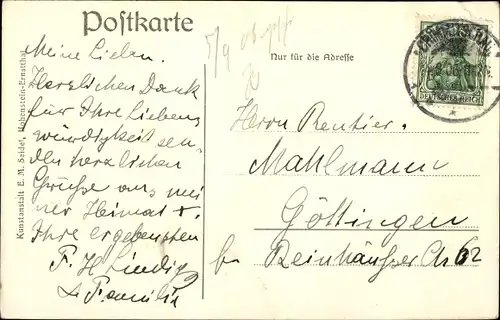 Postkarte
Nur für die Adresse
Kunstanstalt E. M. Seidel, Hohenstein-Ernstthal
5/9 06
Meine Lieben.
Herzlichen Dank
für Ihre Liebens
würdigkeit sen-
den herzlichen
Grüsse aus mei
ner Heimat
Ihre ergebensten
F. H.
& Familie
DEUTSCHES REICH
Herrn Rentier.
Mahlmann
Göttingen
Reinhäuser Ch 62